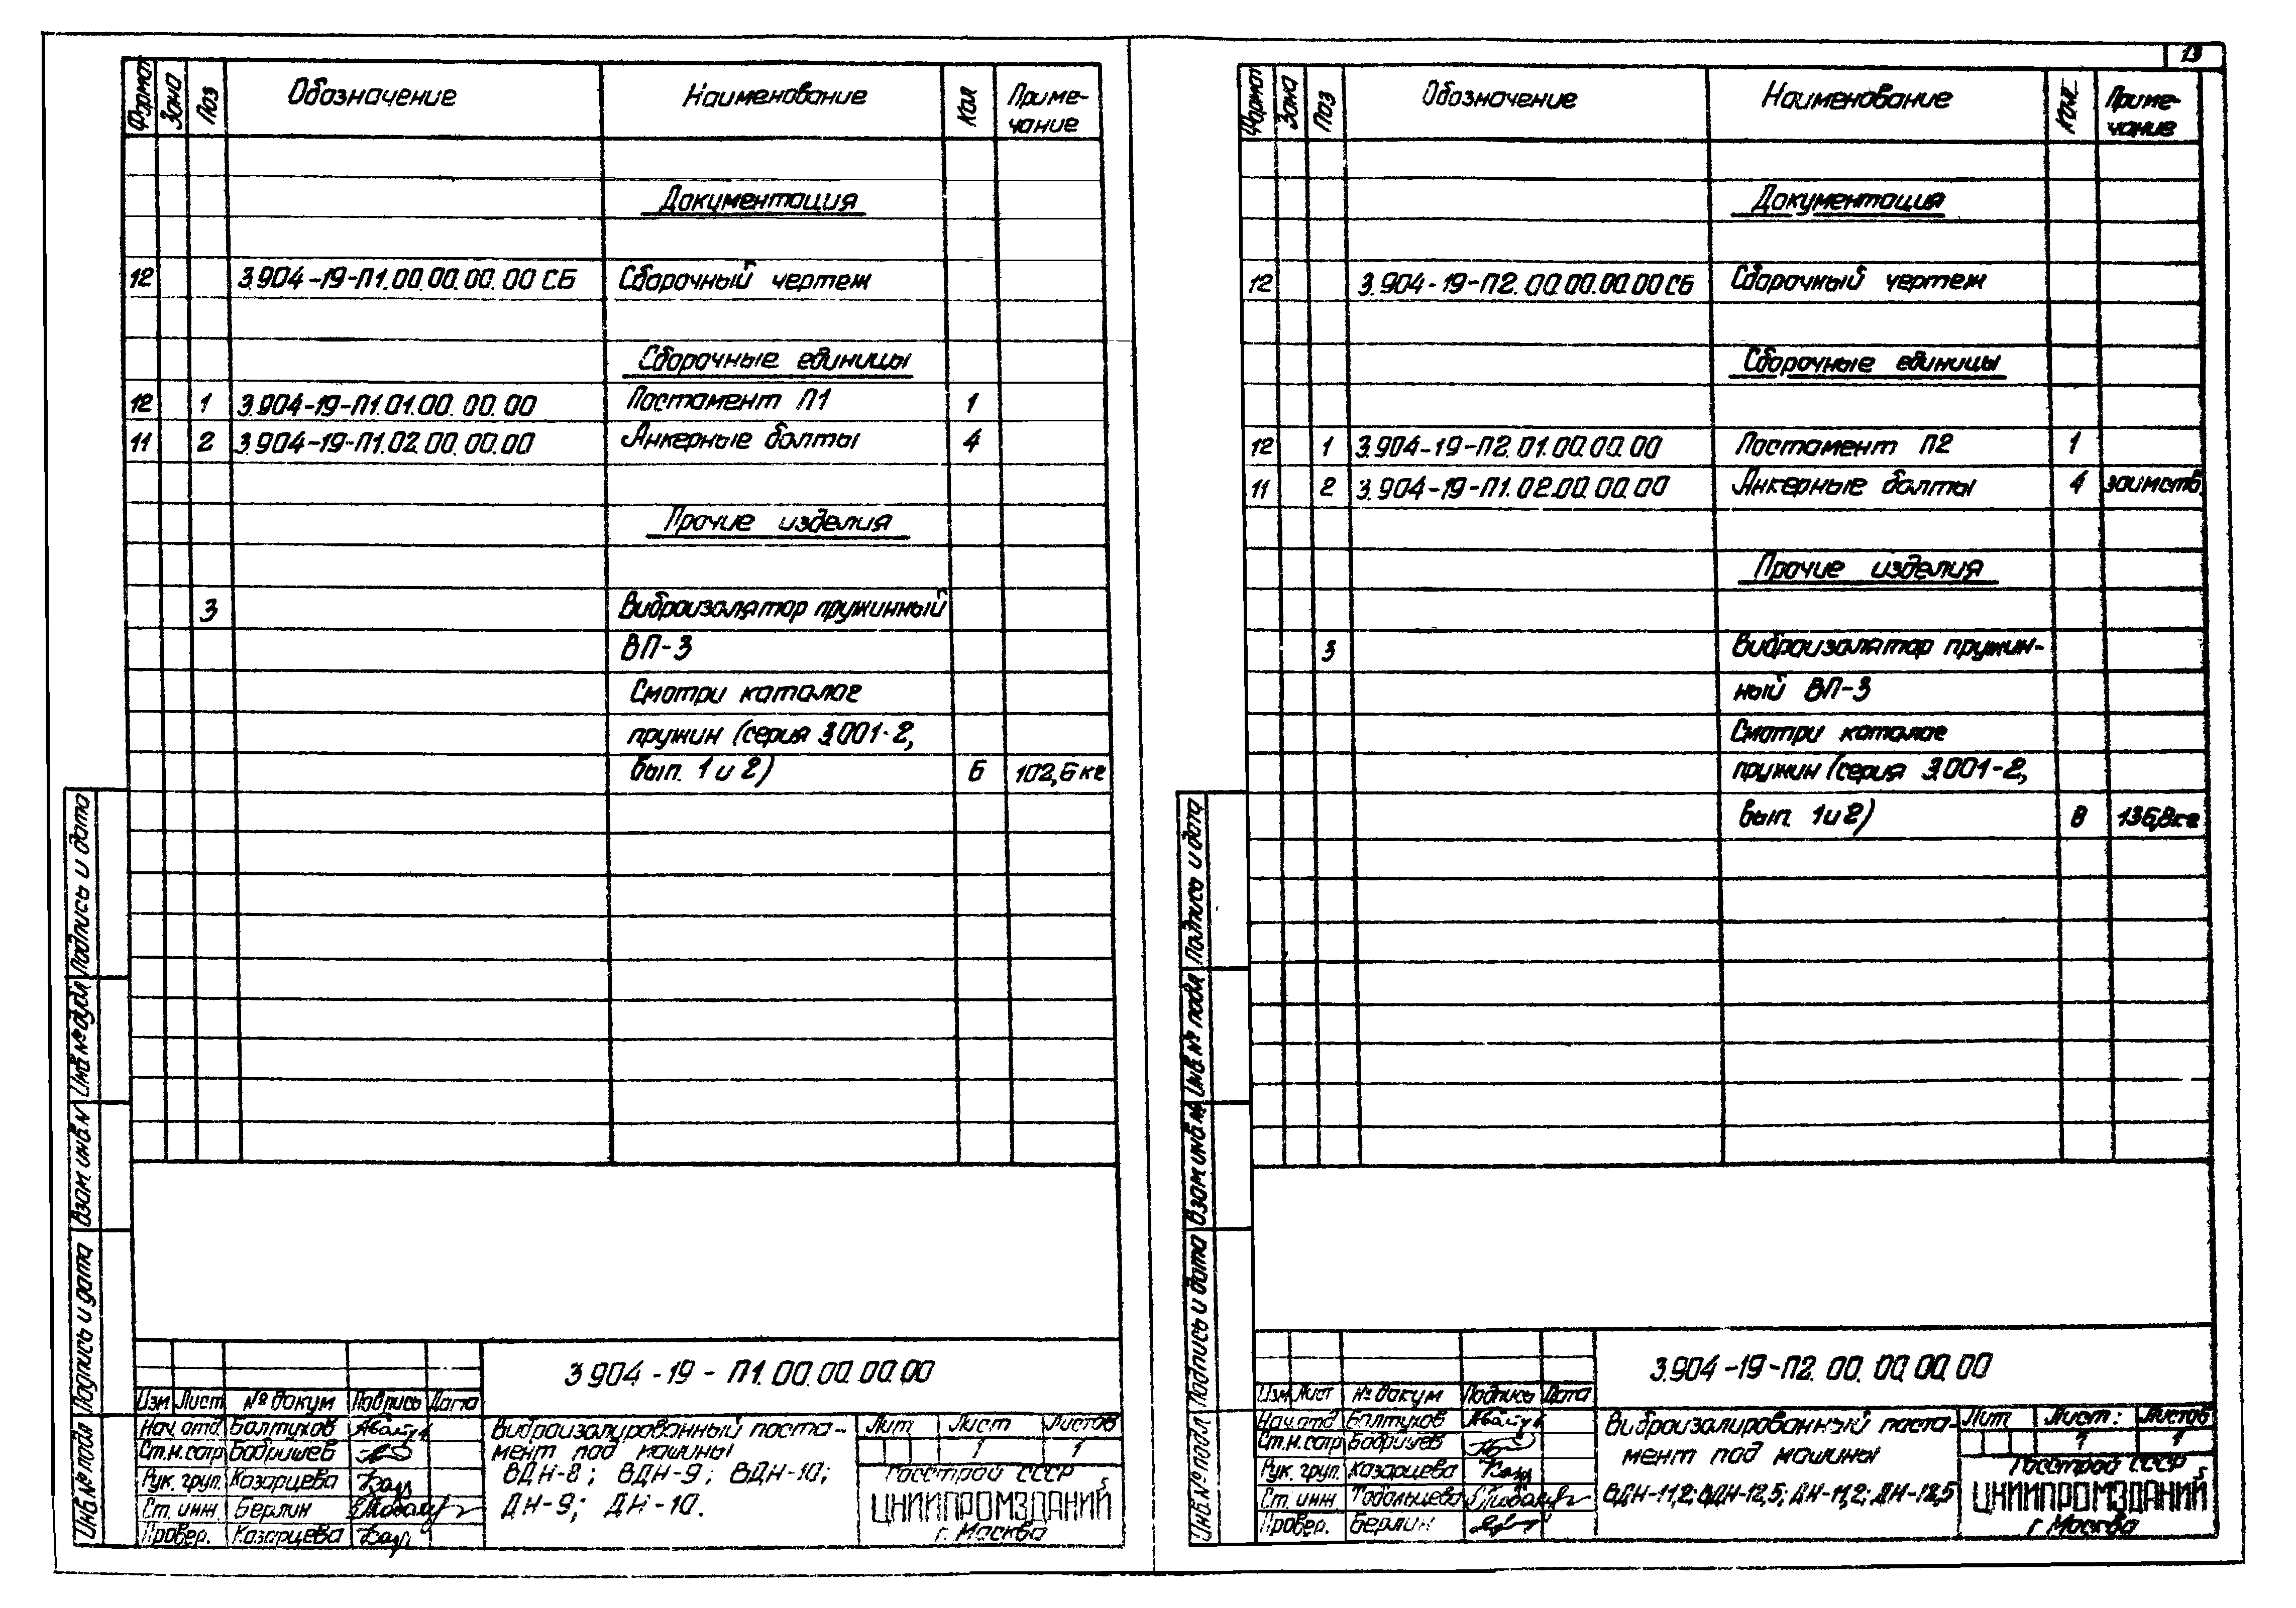 13
Формат Зона Поз Обозначение Наименование Кол Приме-
чание
Документация
12 3.904-19-П1.00.00.00.00 СБ Сборочный чертеж
Сборочные единицы
12 1 3.904-19-П1.01.00.00.00 Постамент П1 1
11 2 3.904-19-П1.02.00.00.00 Анкерные болты 4
Прочие изделия
3 Виброизолятор пружинный
ВП-3
Смотри каталог
пружин (серия 3.001-2,
вып. 1 и 2) 6 102,6 кг
Подпись и дата
Инв.№ дубл
Взам инв.№
Подпись и дата
Инв.№ подл
3.904-19-П1.00.00.00.00
Изм Лист № докум Подпись Дата
Нач. отд. Болтухов
Ст.н.сотр Бобришев
Рук. груп. Казарцева
Ст. инж Берлин
Провер. Казарцева
Виброизолированный поста-
мент под машины
ВДН-8; ВДН-9; ВДН-10;
ДН-9; ДН-10.
Лит Лист Листов
1 1
Госстрой СССР
ЦНИИПРОМЗДАНИЙ
г. Москва
Формат Зона Поз Обозначение Наименование Кол Приме-
чание
Документация
12 3.904-19-П2.00.00.00.00 СБ Сборочный чертеж
Сборочные единицы
12 1 3.904-19-П2.01.00.00.00 Постамент П2 1
11 2 3.904-19-П1.02.00.00.00 Анкерные болты 4 заимств.
Прочие изделия
3 Виброизолятор пружин-
ный ВП-3
Смотри каталог
пружин (серия 3.001-2,
вып. 1 и 2) 8 136,8 кг
Подпись и дата
Инв.№ подл
Взам инв.№
Подпись и дата
Инв.№ подл
3.904-19-П2.00.00.00.00
Изм Лист № докум Подпись Дата
Нач. отд Болтухов
Ст.н.сотр Бобришев
Рук. груп. Казарцева
Ст. инж Тобольцева
Провер. Берлин
Виброизолированный поста-
мент под машины
ВДН-11,2; ВДН-12,5; ДН-11,2; ДН-12,5
Лит Лист: Листов
1 1
Госстрой СССР
ЦНИИПРОМЗДАНИЙ
г Москва